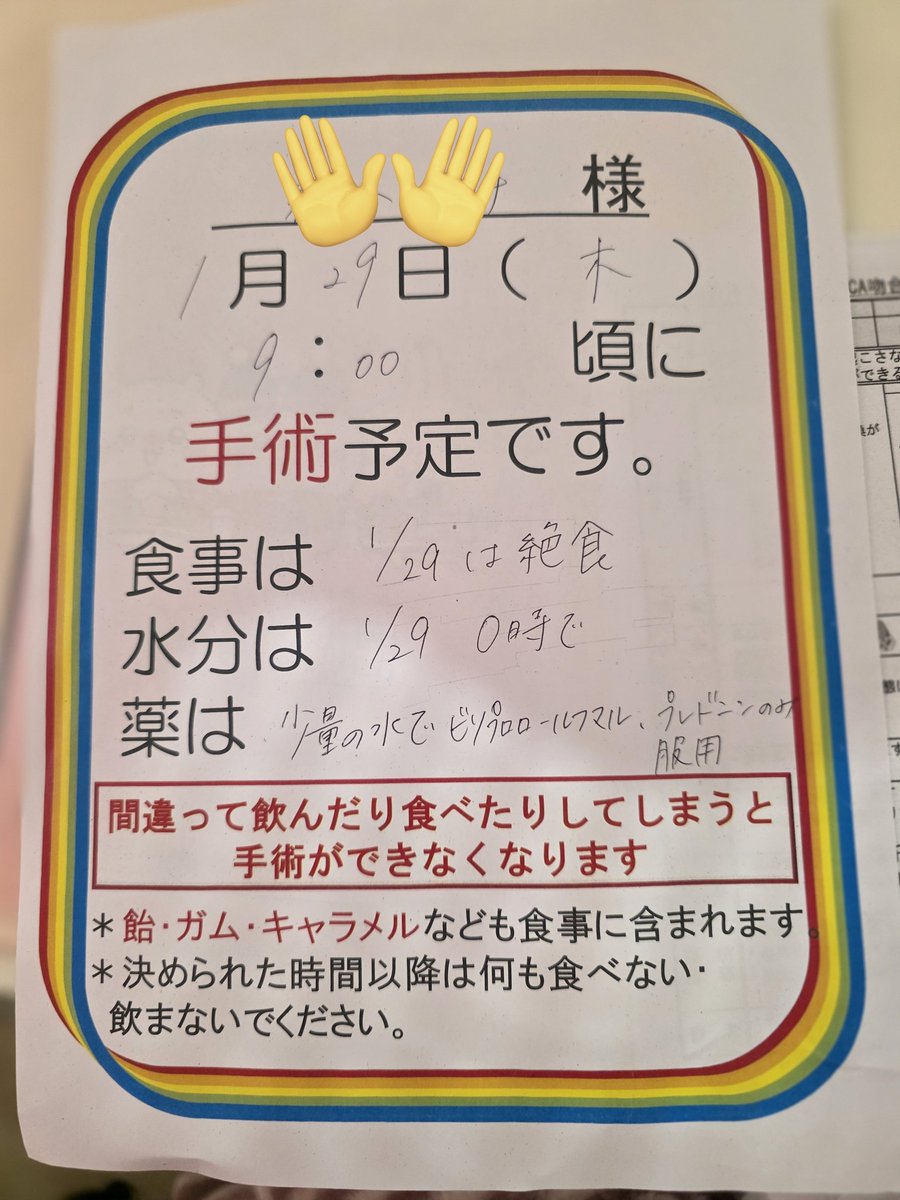 様
1月29日(木)
9:00 頃に
手術予定です。
食事は 1/29は絶食
水分は 1/29 0時で
薬は 少量の水でビソプロロールフマル、プレドニンのみ
服用
間違って飲んだり食べたりしてしまうと
手術ができなくなります
＊飴・ガム・キャラメルなども食事に含まれます。
＊決められた時間以降は何も食べない・
飲まないでください。
CA吻合